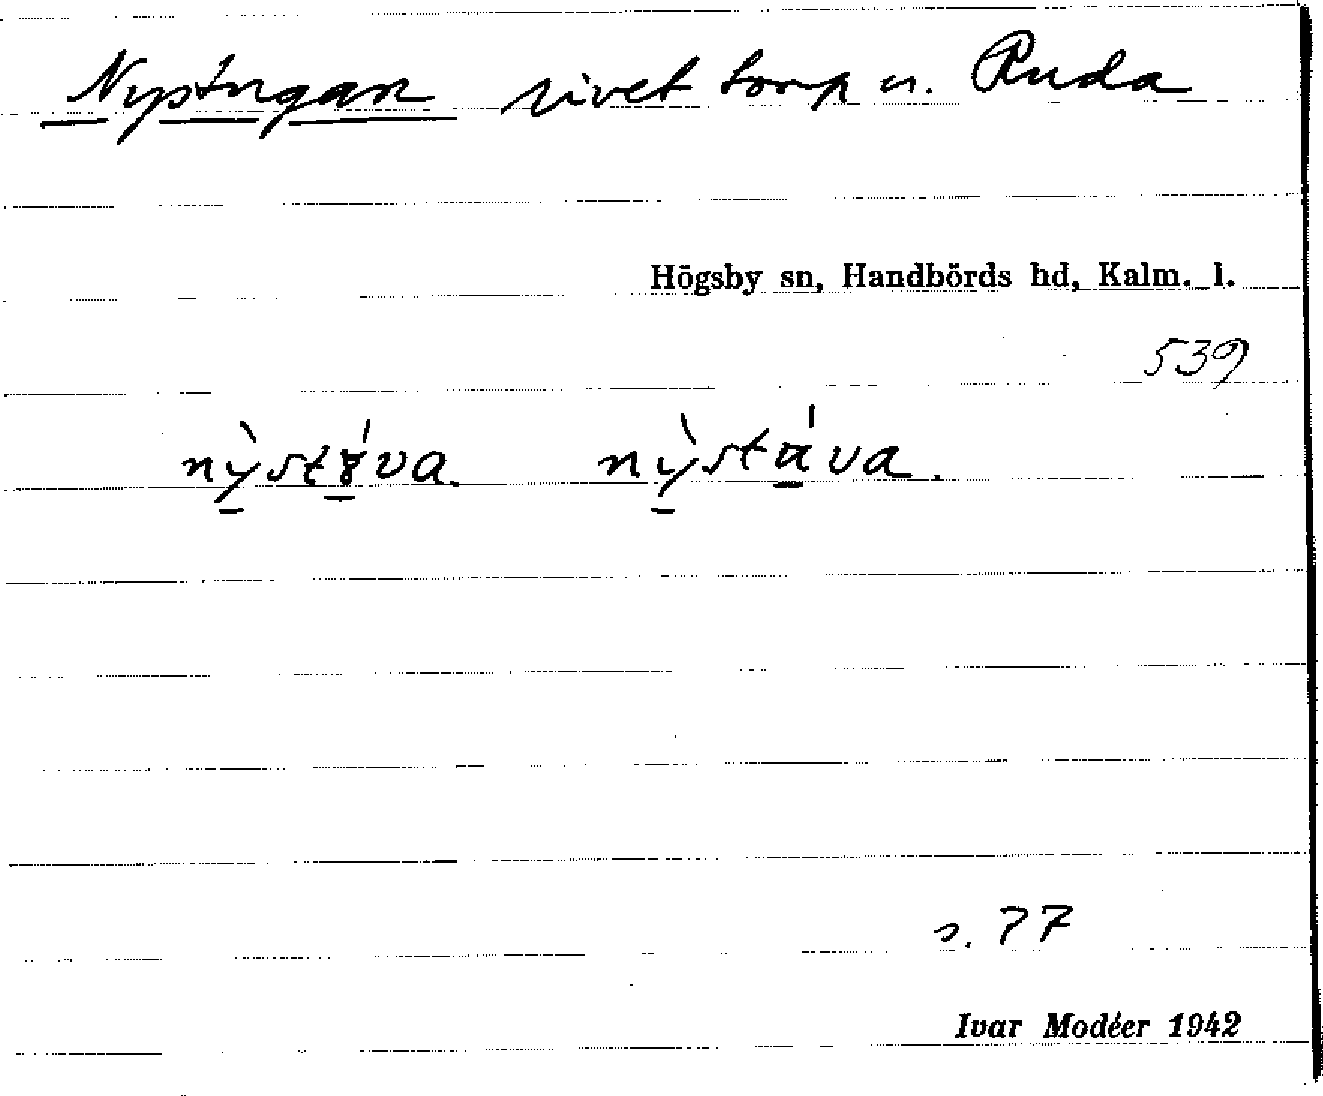 Nystugan rivet torp u. Ruda
Högsby sn, Handbörds hd, Kalm. l.
539
s. 77
Ivar Modéer 1942